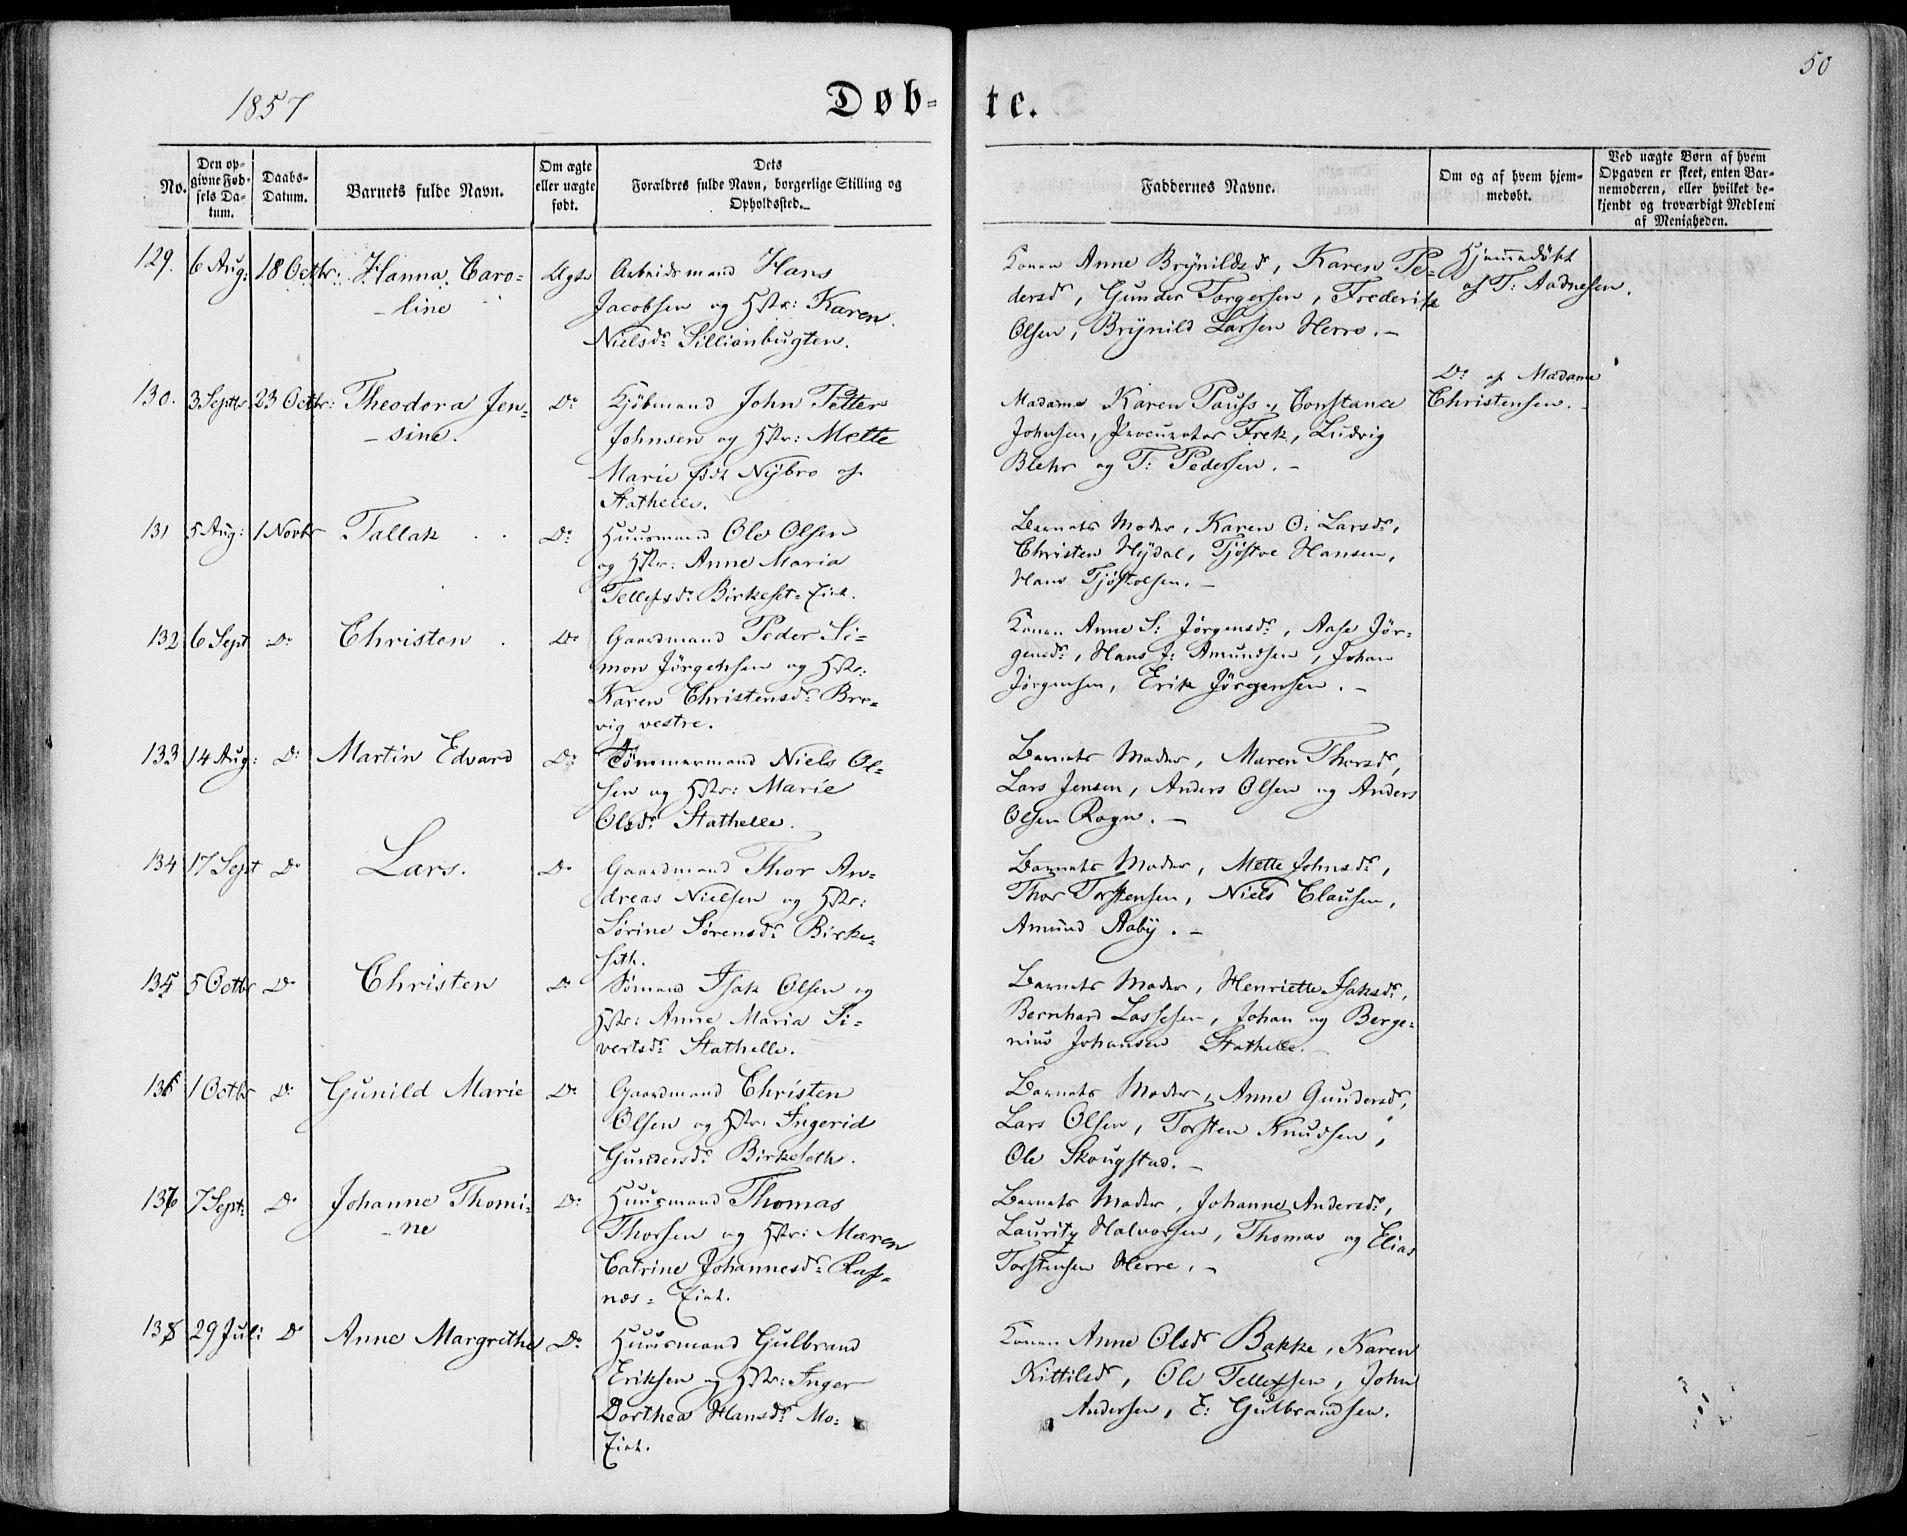 50
1857
Døb-
te.
No.
Den op-
givne Fød-
sels Da-
tum.
Daabs-
Datum.
Barnets fulde Navn.
Om ægte
eller uægte
født.
Dets
Forældres fulde Navn, borgerlige Stilling og
Opholdssted.
Faddernes Navne.
Om og af hvem hjem-
medøbt.
Ved uægte Børn af hvem
Opgaven er skeet, enten Bar-
nemoderen, eller hvilket be-
kjendt og troværdigt Medlem
af Menigheden.
129. 6 Aug: 18 Octbr: Hanna Caro-
line
Ægte
Arbeidsmand Hans
Jacobsen og Hstr: Karen
Nielsdr. Sillianbugten.
Konen Anne Brynildsd, Karen Pe-
dersd, Gunder Torgersen, Frederik
Olsen, Brynild Larsen Herre. —
Hjemmedøbt
af T: Aadnesen.
130. 3 Septbr. 23 Octbr: Theodora Jen-
sine.
Do
Kjøbmand John Petter
Johnsen og Hstr: Mette
Marie født Nybro af
Stathelle.
Madame Karen Pauss, Constance
Johnsen, Procurator Frek, Ludvig
Blehr og T: Pedersen. —
Do af Madame
Christensen.
131 5 Aug: 1 Novbr Tallak
Do
Huusmand Ole Olsen
og Hstr: Anne Maria
Tellefsdr. Birkeset-Eiet.
Barnets Moder, Karen O: Larsdr.,
Christen Hydal, Tjøstve Hansen,
Hans Tjøstolsen. —
132 6 Sept Do Christen
Do
Gaardmand Peder Si-
mon Jørgensen og Hstr:
Karen Christensdr. Bre-
vig vestre.
Konen Anne S: Jørgensdr., Aase Jør-
gensdr., Hans J: Amundsen, Johan
Jørgensen, Erik Jørgensen. —
133 14 Aug: Do Martin Edvard
Do
Tømmermand Niels Ol-
sen og Hstr: Marie
Olsdr. Stathelle.
Barnets Moder, Maren Thorsd,
Lars Jensen, Anders Olsen og Anders
Olsen Rogn. —
134 17 Sept Do Lars.
Do
Gaardmand Thor An-
dreas Nielsen og Hstr:
Sørine Sørensdr. Birke-
seth.
Barnets Moder, Mette Johnsdr.,
Thor Torstensen, Niels Clausen,
Amund Aaby. —
135 5 Octbr Do Christen
Do
Sømand Isak Olsen og
Hstr: Anne Maria Si-
vertsdr. Stathelle.
Barnets Moder, Henriette Isaksdr.,
Bernhard Lassesen, Johan og Berge-
nius Johansen Stathelle. —
136 1 Octbr Do Gunild Marie
Do
Gaardmand Christen
Olsen og Hstr: Ingerid
Gundersdr. Birkeseth.
Barnets Moder, Anne Gundersdr,
Lars Olsen, Torsten Knudsen,
Ole Skougstad. —
137 7 Sept: Do Johanne Thomi-
ne
Do
Huusmand Thomas
Thorsen og Hstr: Maren
Catrine Johannesdr. Raf-
næs-Eiet.
Barnets Moder, Johanne Andersdr.,
Lauritz Halvorsen, Thomas og Elias
Torstensen Herre. —
138 29 Juli Do Anne Margrethe
Do
Huusmand Gulbrand
Eriksen og Hstr: Inger
Dorthea Hansdr. Mo-
Eiet.
Konen Anne Olsdr. Bakke, Karen
Kittilsd, Ole Tellefsen, John
Andersen, E: Gulbrandsen.